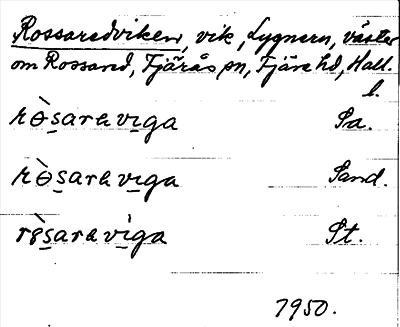 Rossaredviken, vik, Lygnern, väster
om Rossared, Fjärås sn, Fjäre hd, Hall.
l.
rò̱saravi̱ga Sa.
rò̱saravi̱ga Sand.
rò̱saravi̱ga St.
1950.